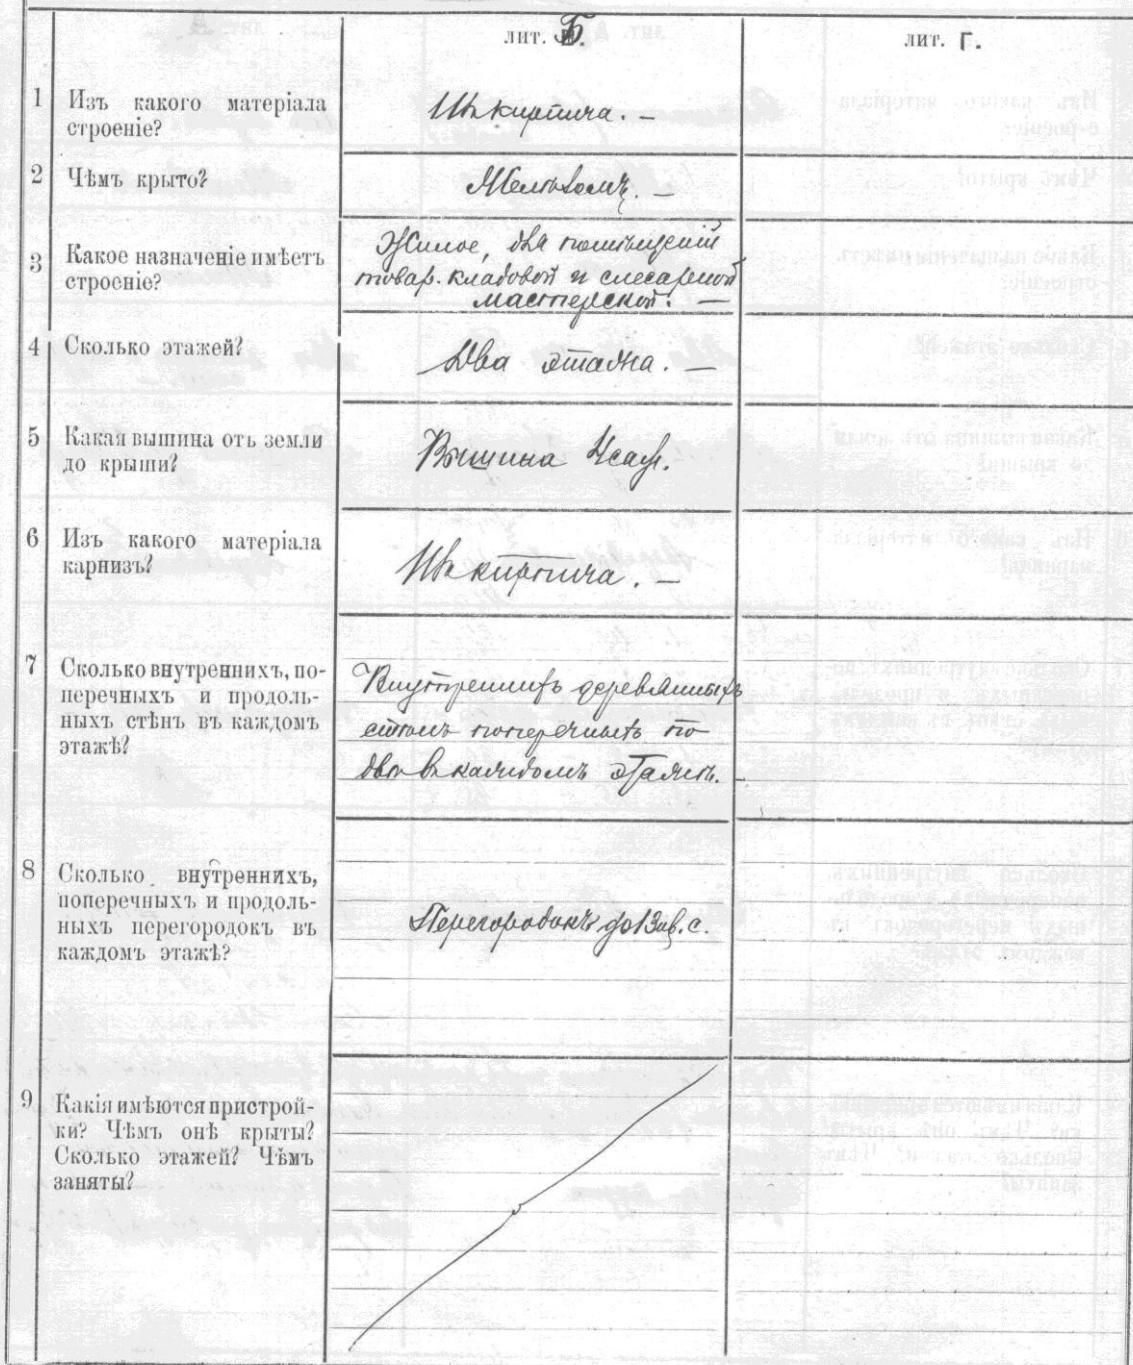 лит. Б.
лит. Г.
1 Изъ какого матеріала
строеніе?
Изъ кирпича. —
2 Чѣмъ крыто?
Желѣзомъ. —
3 Какое назначеніе имѣетъ
строеніе?
Жилое, для помѣщеній
товар. кладовой и слесарной
мастерской. —
4 Сколько этажей?
Два этажа. —
5 Какая вышина отъ земли
до крыши?
Вышина 4 саж.
6 Изъ какого матеріала
карнизъ?
Изъ кирпича. —
7 Сколько внутреннихъ, по-
перечныхъ и продоль-
ныхъ стѣнъ въ каждомъ
этажѣ?
Внутреннихъ деревянныхъ
стѣнъ поперечныхъ по
двѣ въ каждомъ этажѣ.
8 Сколько внутреннихъ,
поперечныхъ и продоль-
ныхъ перегородокъ въ
каждомъ этажѣ?
Перегородокъ до 13
9 Какія имѣются пристрой-
ки? Чѣмъ онѣ крыты?
Сколько этажей? Чѣмъ
заняты?